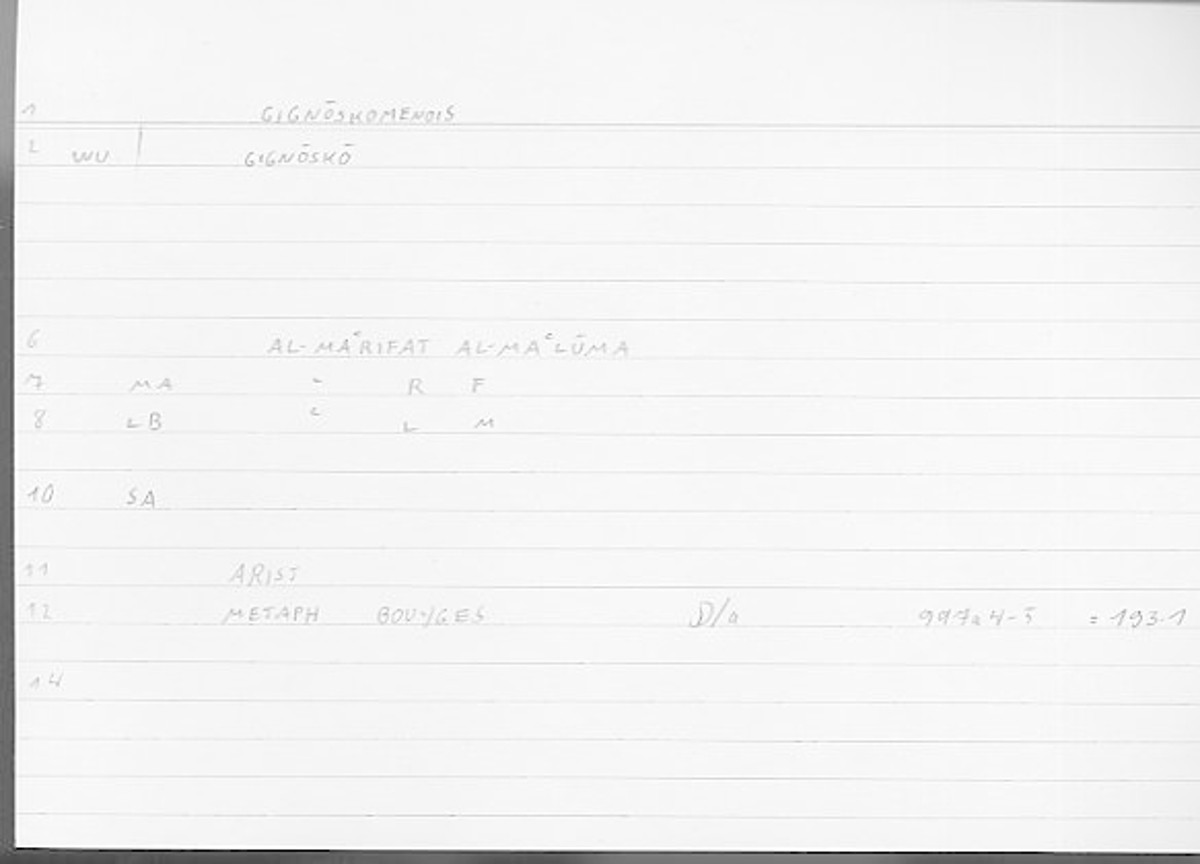 1 GIGNŌSKOMENOIS
2 WU GIGNŌSKŌ
6 AL-MAʿRIFAT AL-MAʿLŪMA
7 MA ʿ R F
8 LB ʿ L M
10 SA
11 ARIST
12 METAPH BOUYGES D/a 997a4-5 = 193.1
14